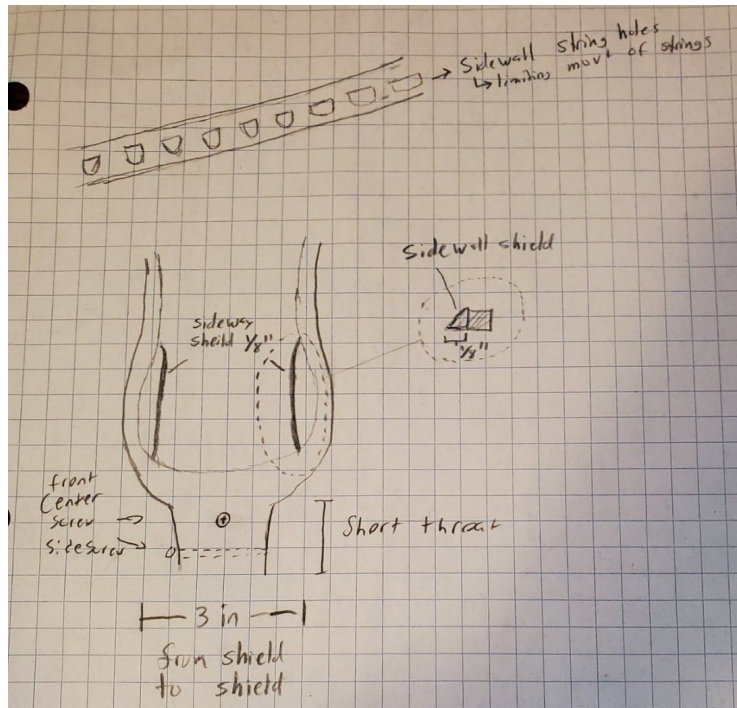 Sidewall string holes
↳ limiting mov't of strings
Sidewall shield
1/8"
sideway
sheild 1/8"
front
Center
screw
side screw
Short throat
3 in
from shield
to shield